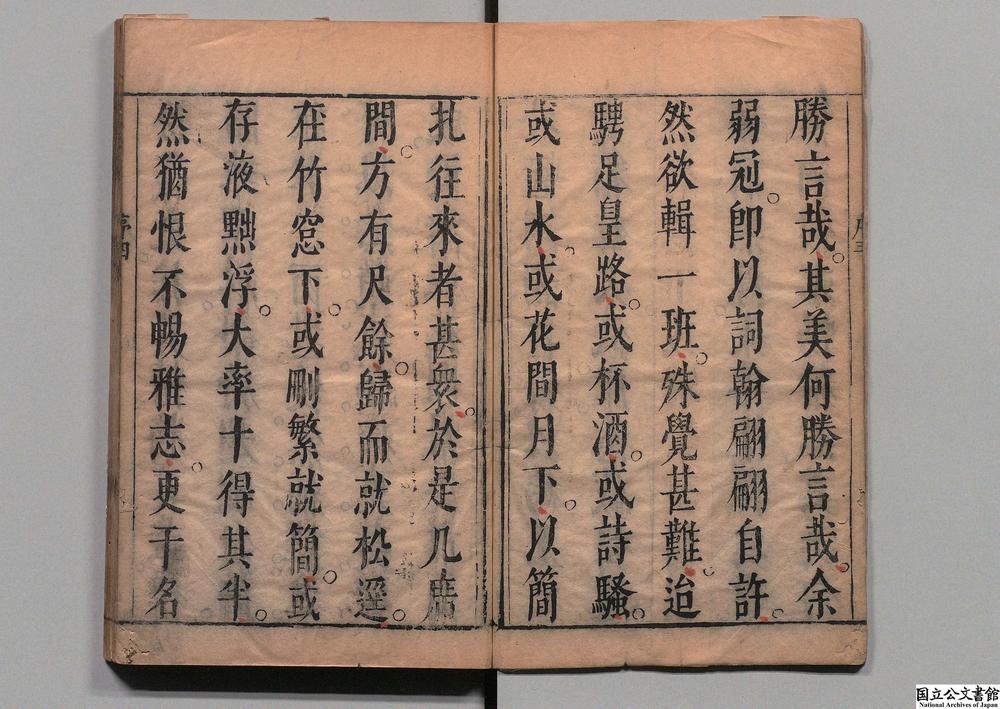 勝言哉其美何勝言哉余
弱冠卽以詞翰翩翩自許
然欲輯一班殊覺甚難迨
騁足皇路或杯酒或詩騷
或山水或花間月下以簡
扎往來者甚衆於是几席
間方有尺餘歸而就松逕
在竹窓下或刪繁就簡或
存液黜浮大率十得其半
然猶恨不暢雅志更干名
序三
序四
国立公文書館
National Archives of Japan